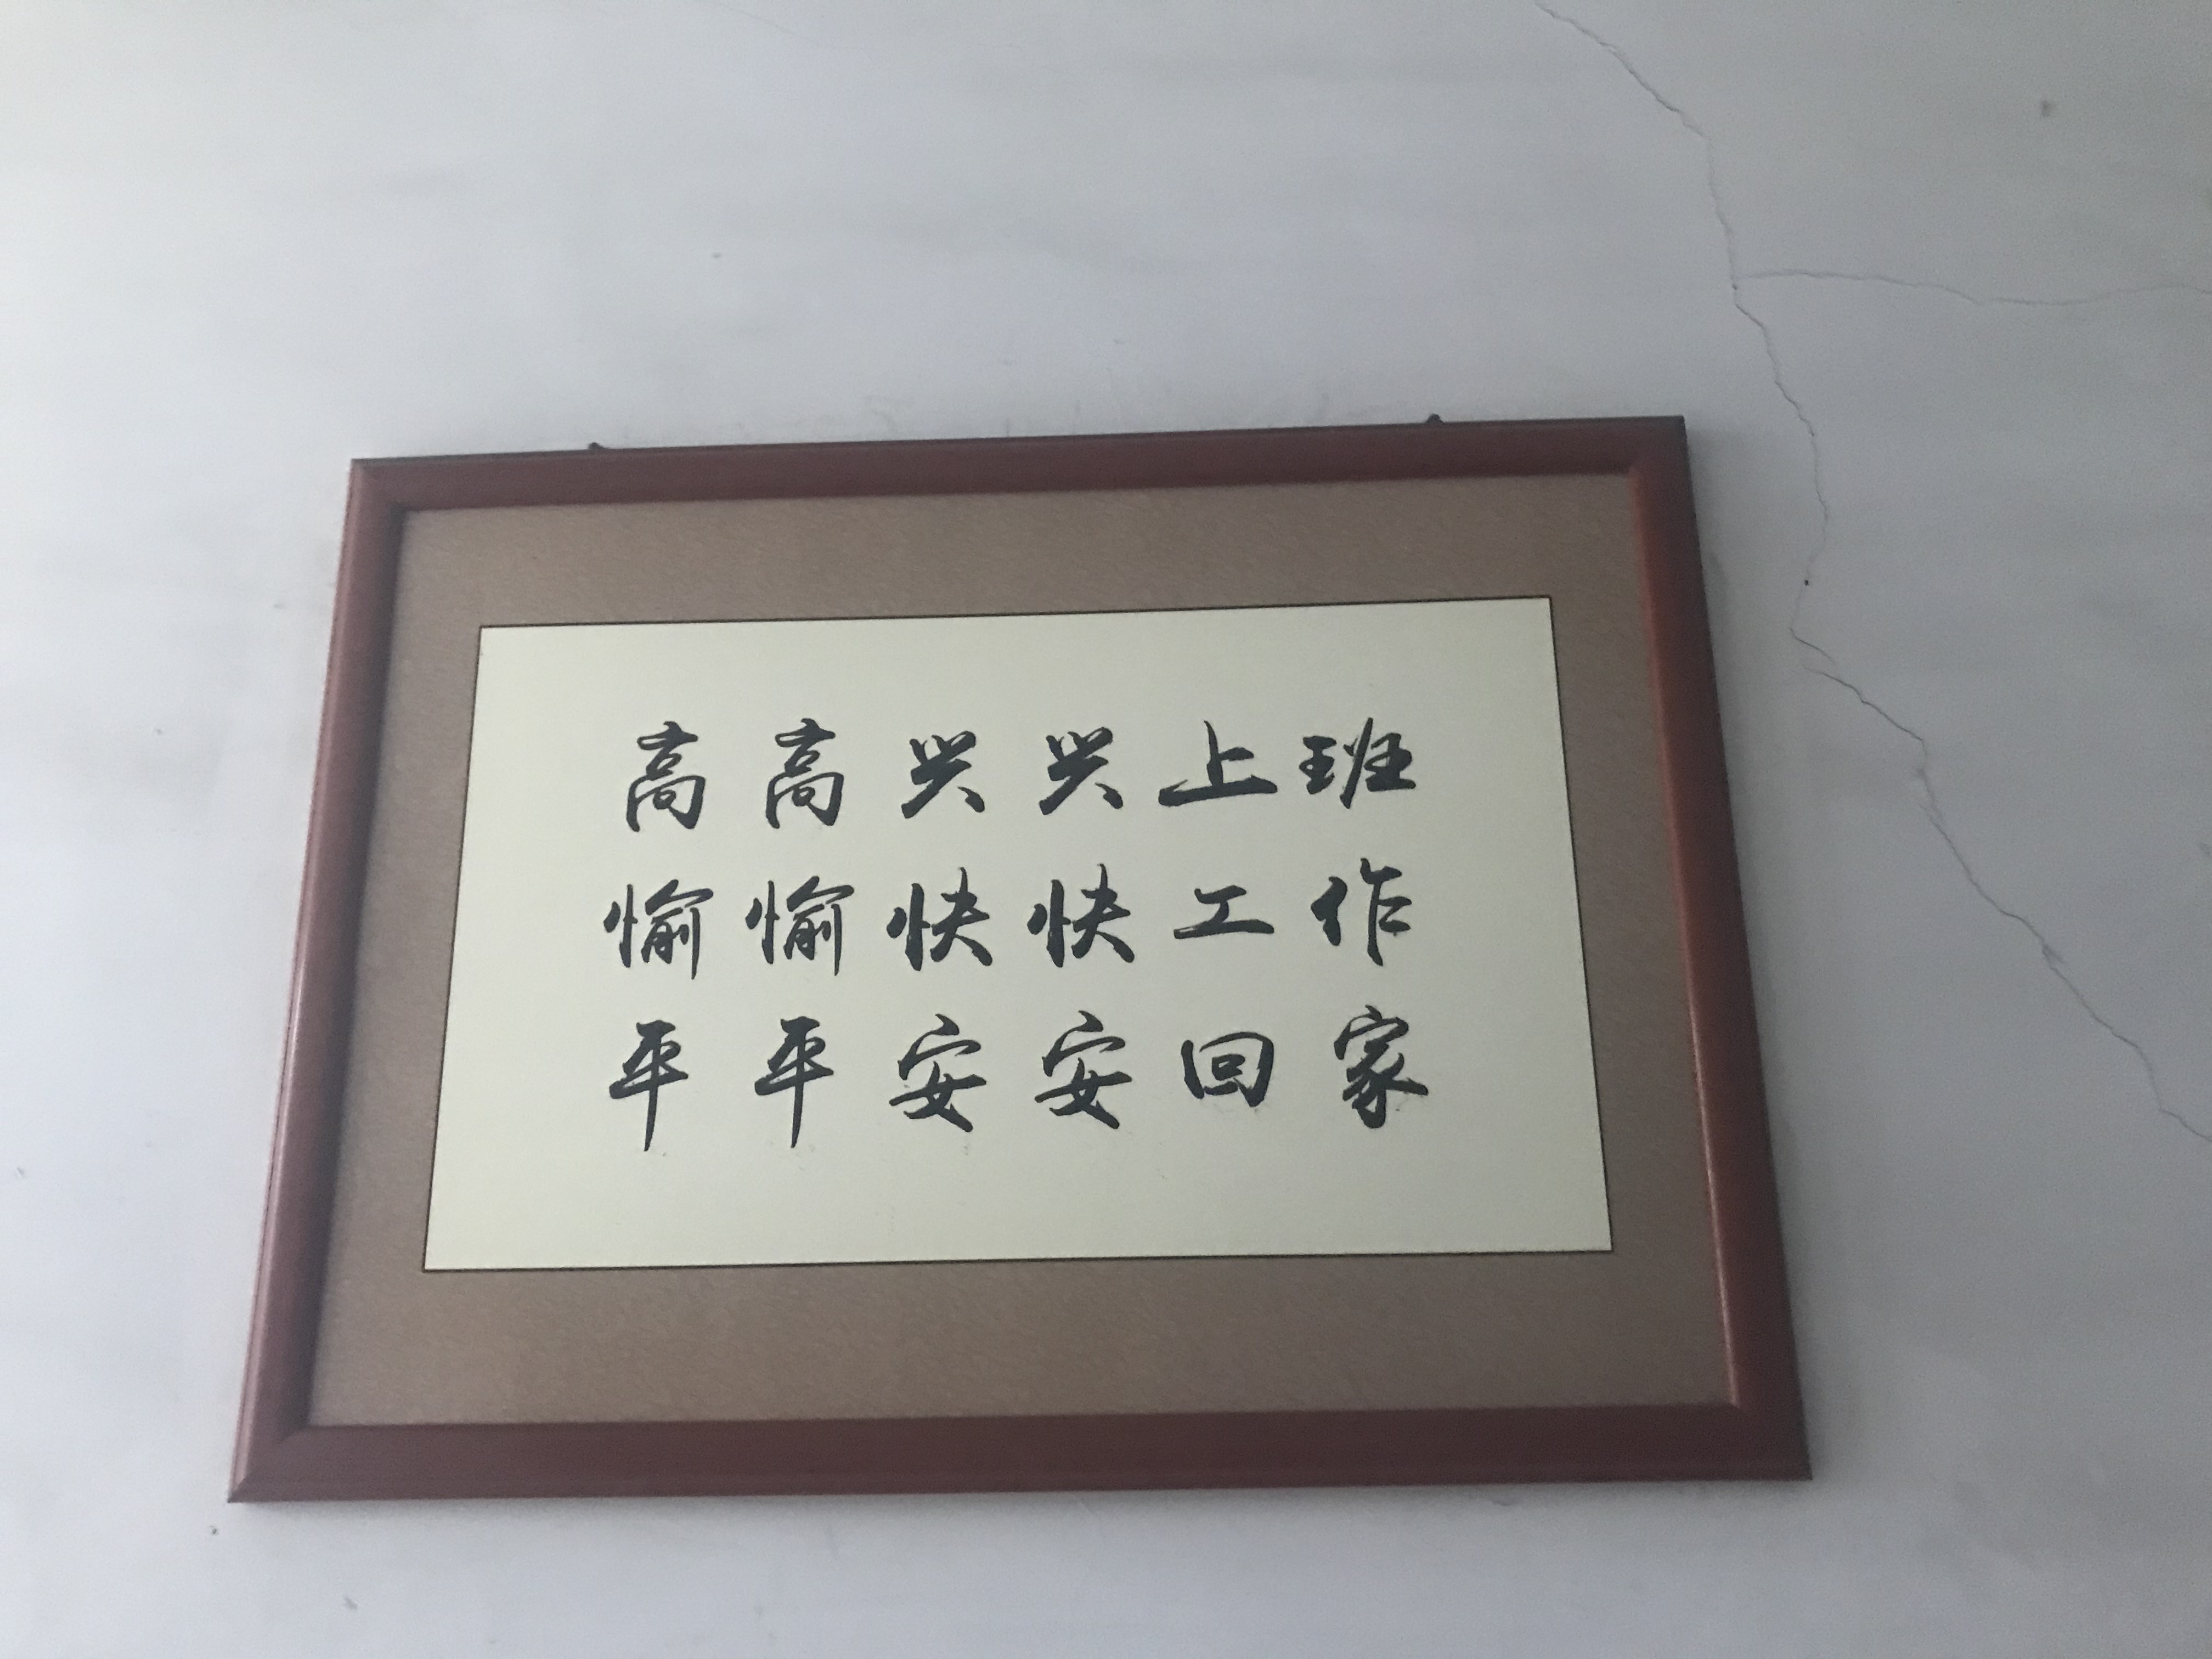 高高兴兴上班
愉愉快快工作
平平安安回家